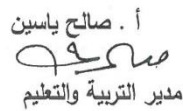 أ . صالح ياسين
مدير التربية والتعليم